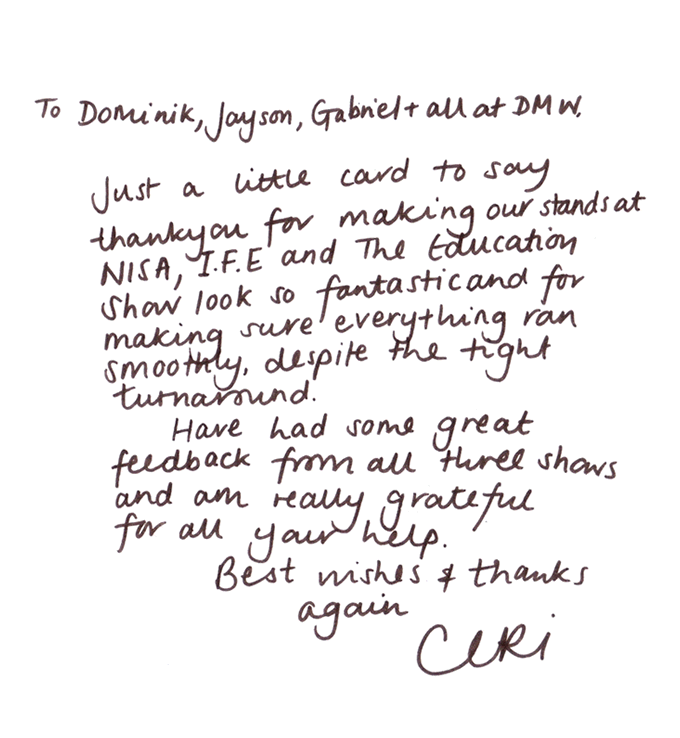 To Dominik, Jayson, Gabriel + all at DMW.
Just a little card to say
thankyou for making our stands at
NISA, I.F.E and The Education
Show look so fantastic and for
making sure everything ran
smoothly, despite the tight
turnaround.
Have had some great
feedback from all three shows
and am really grateful
for all your help.
Best wishes & thanks
again
CERi